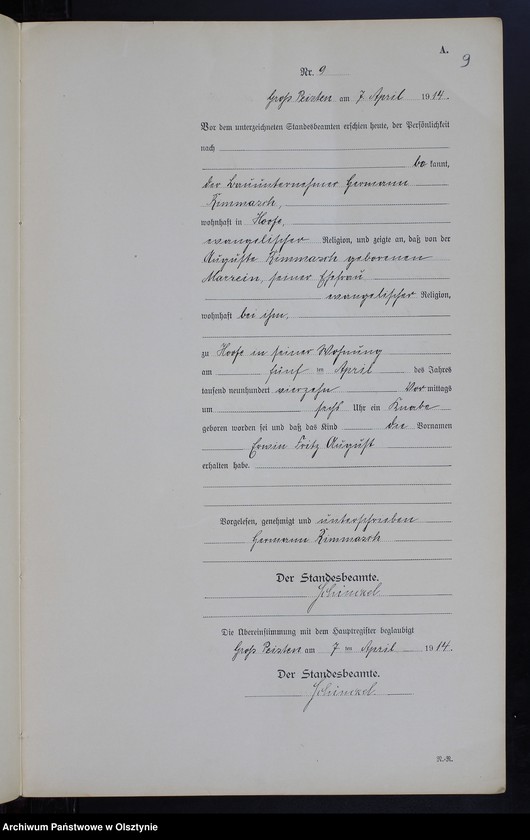 A.
9
Nr. 9
Groß Peisten am 7 April 1914.
Vor dem unterzeichneten Standesbeamten erschien heute, der Persönlichkeit
nach
be kannt,
der Bauunternehmer Hermann
Kimmasch,
wohnhaft in Hoofe,
evangelischer Religion, und zeigte an, daß von der
Auguste Kimmasch geborenen
seiner Ehefrau
evangelischer Religion,
wohnhaft bei ihm,
zu Hoofe in seiner Wohnung
am fünf ten April des Jahres
tausend neunhundert vierzehn Vor mittags
um sechs Uhr ein Knabe
geboren worden sei und daß das Kind die Vornamen
Erwin Fritz August
erhalten habe.
Vorgelesen, genehmigt und unterschrieben
Hermann Kimmasch
Der Standesbeamte.
Schinckel
Die Übereinstimmung mit dem Hauptregister beglaubigt
Groß Peisten am 7 ten April 1914.
Der Standesbeamte.
Schinckel
N.-R.
Archiwum Państwowe w Olsztynie